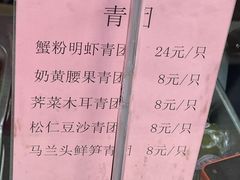 青团
蟹粉明虾青团 24元/只
奶黄腰果青团 8元/只
荠菜木耳青团 8元/只
松仁豆沙青团 8元/只
马兰头鲜笋青团 8元/只